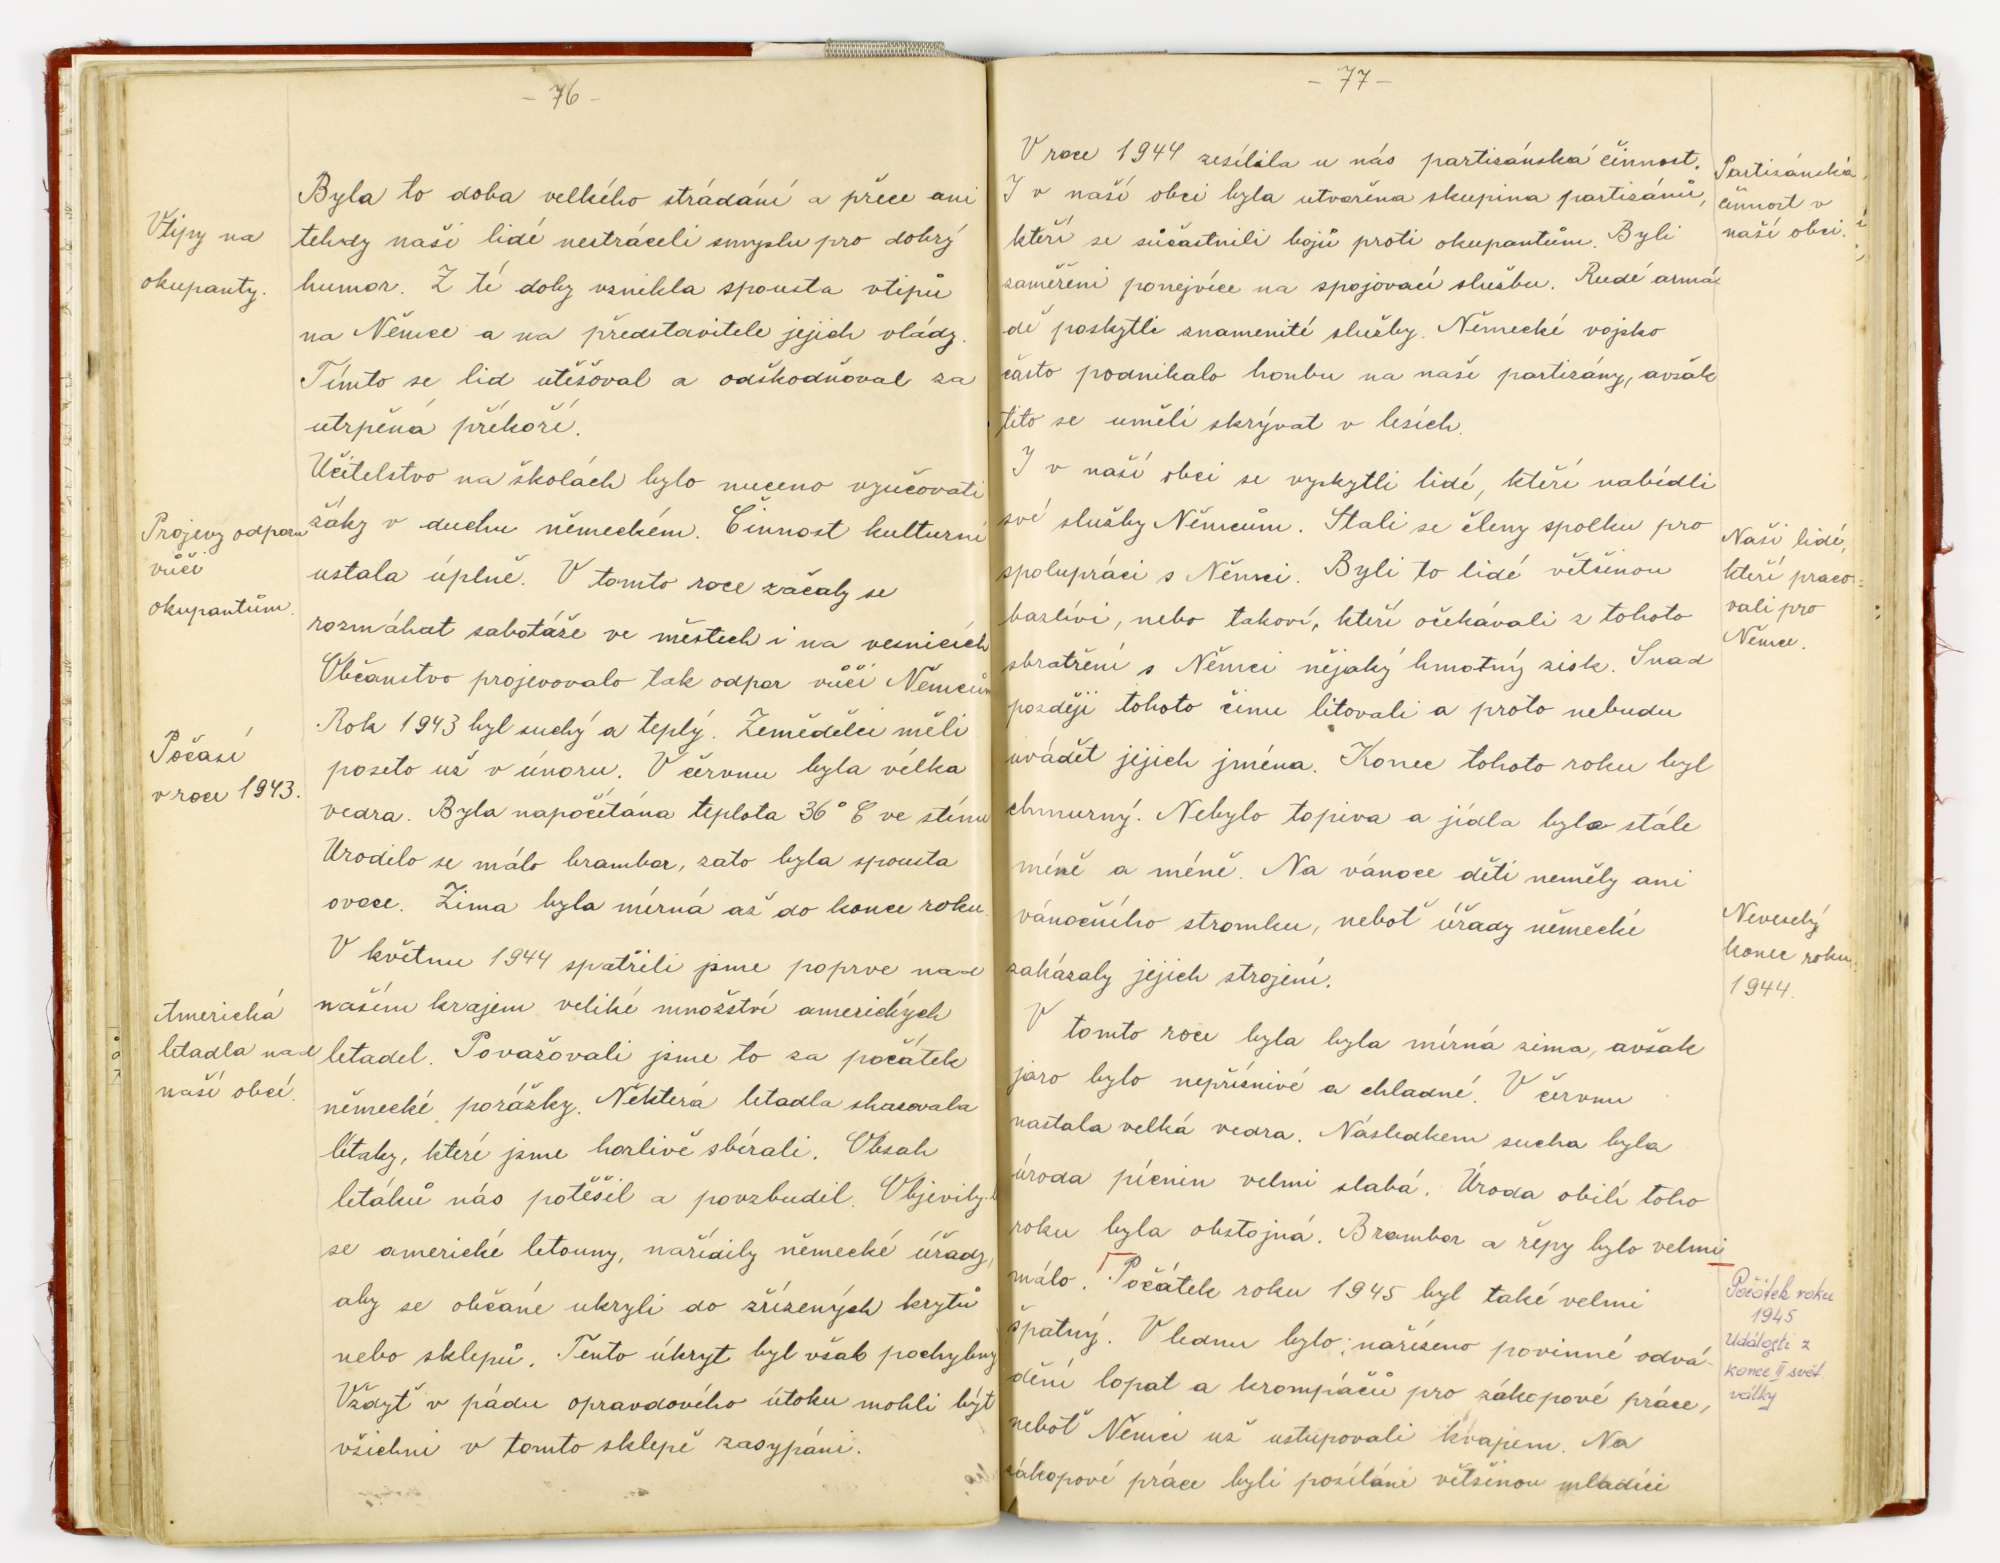 - 76 -
Vtipy na
okupanty.
Projevy odporu
vůči
okupantům.
Počasí
v roce 1943.
Americká
letadla nad
naší obcí.
Byla to doba velkého strádání a přece ani
tehdy naši lidé nestráceli smyslu pro dobrý
humor. Z té doby vznikla spousta vtipů
na Němce a na představitele jejich vlády.
Tímto se lid utěšoval a odškodňoval za
utrpěná příkoří.
Učitelstvo na školách bylo nuceno vyučovati
žáky v duchu německém. Činnost kulturní
ustala úplně. V tomto roce začaly se
rozmáhat sabotáže ve městech i na vesnicích
Občanstvo projevovalo tak odpor vůči Němcům
Rok 1943 byl suchý a teplý. Zemědělci měli
poseto už v únoru. V červnu byla velká
vedra. Byla napočítána teplota 36° C ve stínu
Urodilo se málo brambor, zato byla spousta
ovoce. Zima byla mírná až do konce roku.
V květnu 1944 spatřili jsme poprve nad
naším krajem veliké množství amerických
letadel. Považovali jsme to za počátek
německé porážky. Některá letadla shazovala
letáky, které jsme horlivě sbírali. Obsah
letáků nás potěšil a povzbudil. Objevily-li
se americké letouny, nařídily německé úřady,
aby se občané ukryli do zřízených krytů
nebo sklepů. Tento úkryt byl však pochybný
Vždyť v pádu opravdového útoku mohli být
všichni v tomto sklepě zasypáni.
- 77 -
V roce 1944 zesílila u nás partizánská činnost.
I v naší obci byla utvořena skupina partizánů,
kteří se súčastnili bojů proti okupantům. Byli
zaměřeni ponejvíce na spojovací službu. Rudé armá
dě poskytli znamenité služby. Německé vojsko
často podnikalo honbu na naše partizány, avšak
tito se uměli skrývat v lesích.
I v naší obci se vyskytli lidé, kteří nabídli
své služby Němcům. Stali se členy spolku pro
spolupráci s Němci. Byli to lidé většinou
bázliví, nebo takoví, kteří očekávali z tohoto
sbratření s Němci nějaký hmotný zisk. Snad
později tohoto činu litovali a proto nebudu
uvádět jejich jména. Konec tohoto roku byl
chmurný. Nebylo topiva a jídla bylo stále
méně a méně. Na vánoce děti neměly ani
vánočního stromku, neboť úřady německé
zakázaly jejich strojení.
V tomto roce byla byla mírná zima, avšak
jaro bylo nepříznivé a chladné. V červnu
nastala velká vedra. Následkem sucha byla
úroda pícnin velmi slabá. Úroda obilí toho
roku byla obstojná. Brambor a řepy bylo velmi
málo. Počátek roku 1945 byl také velmi
špatný. V lednu bylo nařízeno povinné odvá-
dění lopat a krompáčů pro zákopové práce,
neboť Němci už ustupovali krajem. Na
zákopové práce byli posíláni většinou mladíci
Partizánská
činnost v
naší obci.
Naši lidé,
kteří praco=
vali pro
Němce.
Neveselý
konec roku
1944.
Počátek roku
1945
Události z
konce II svět.
války